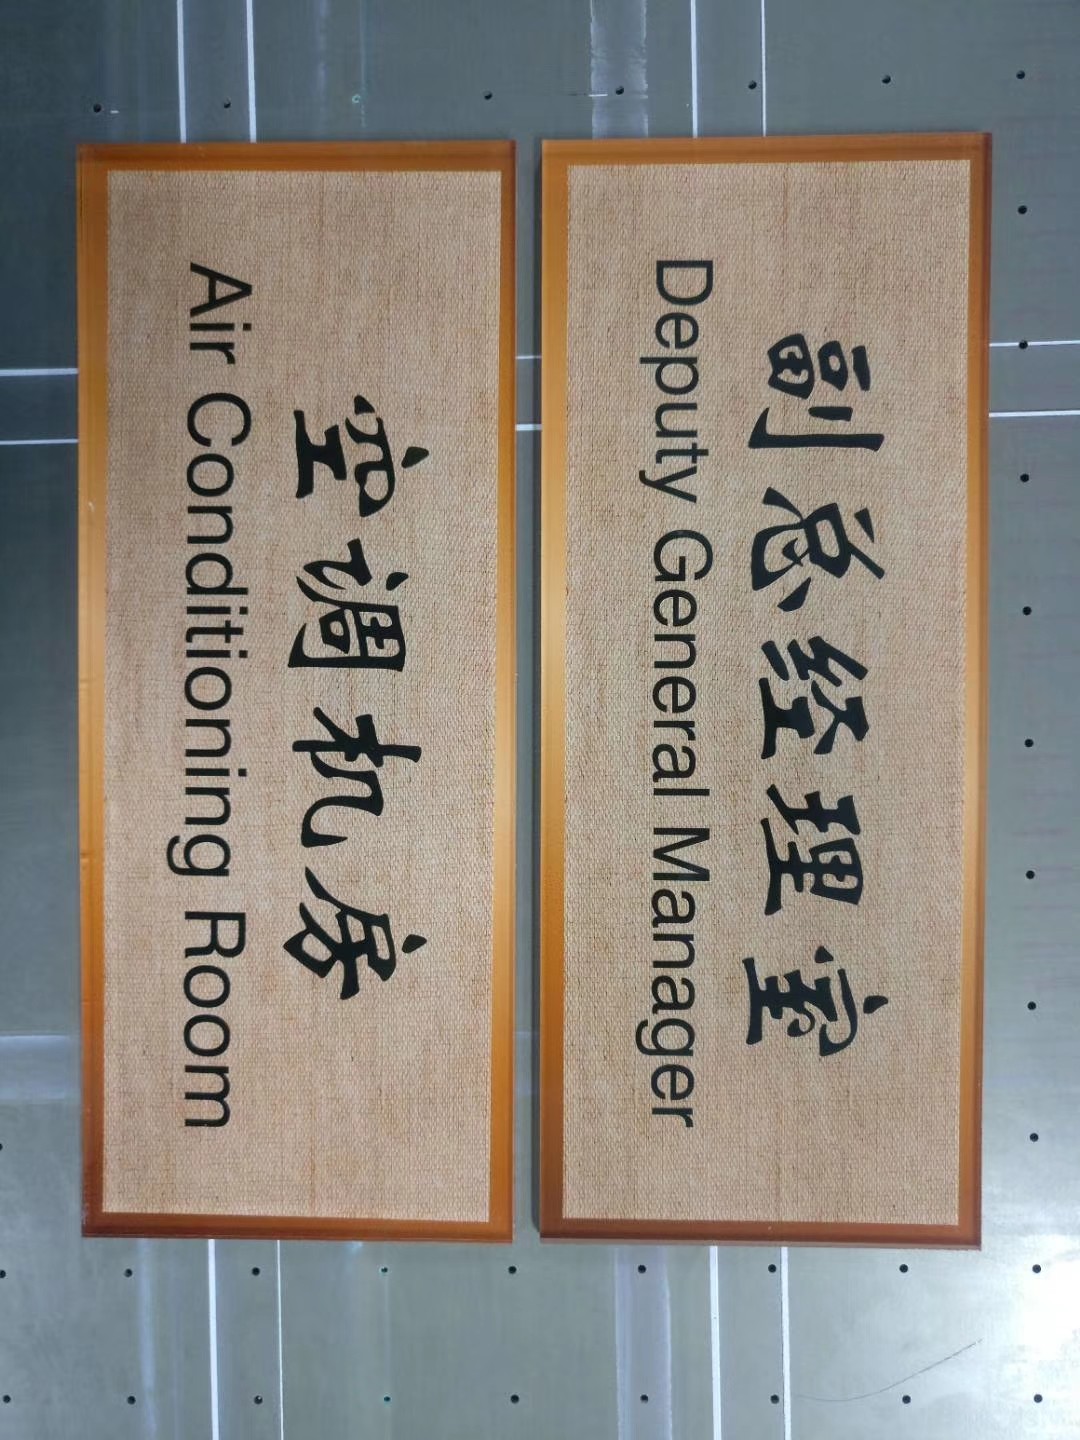 副总经理室
Deputy General Manager
空调机房
Air Conditioning Room